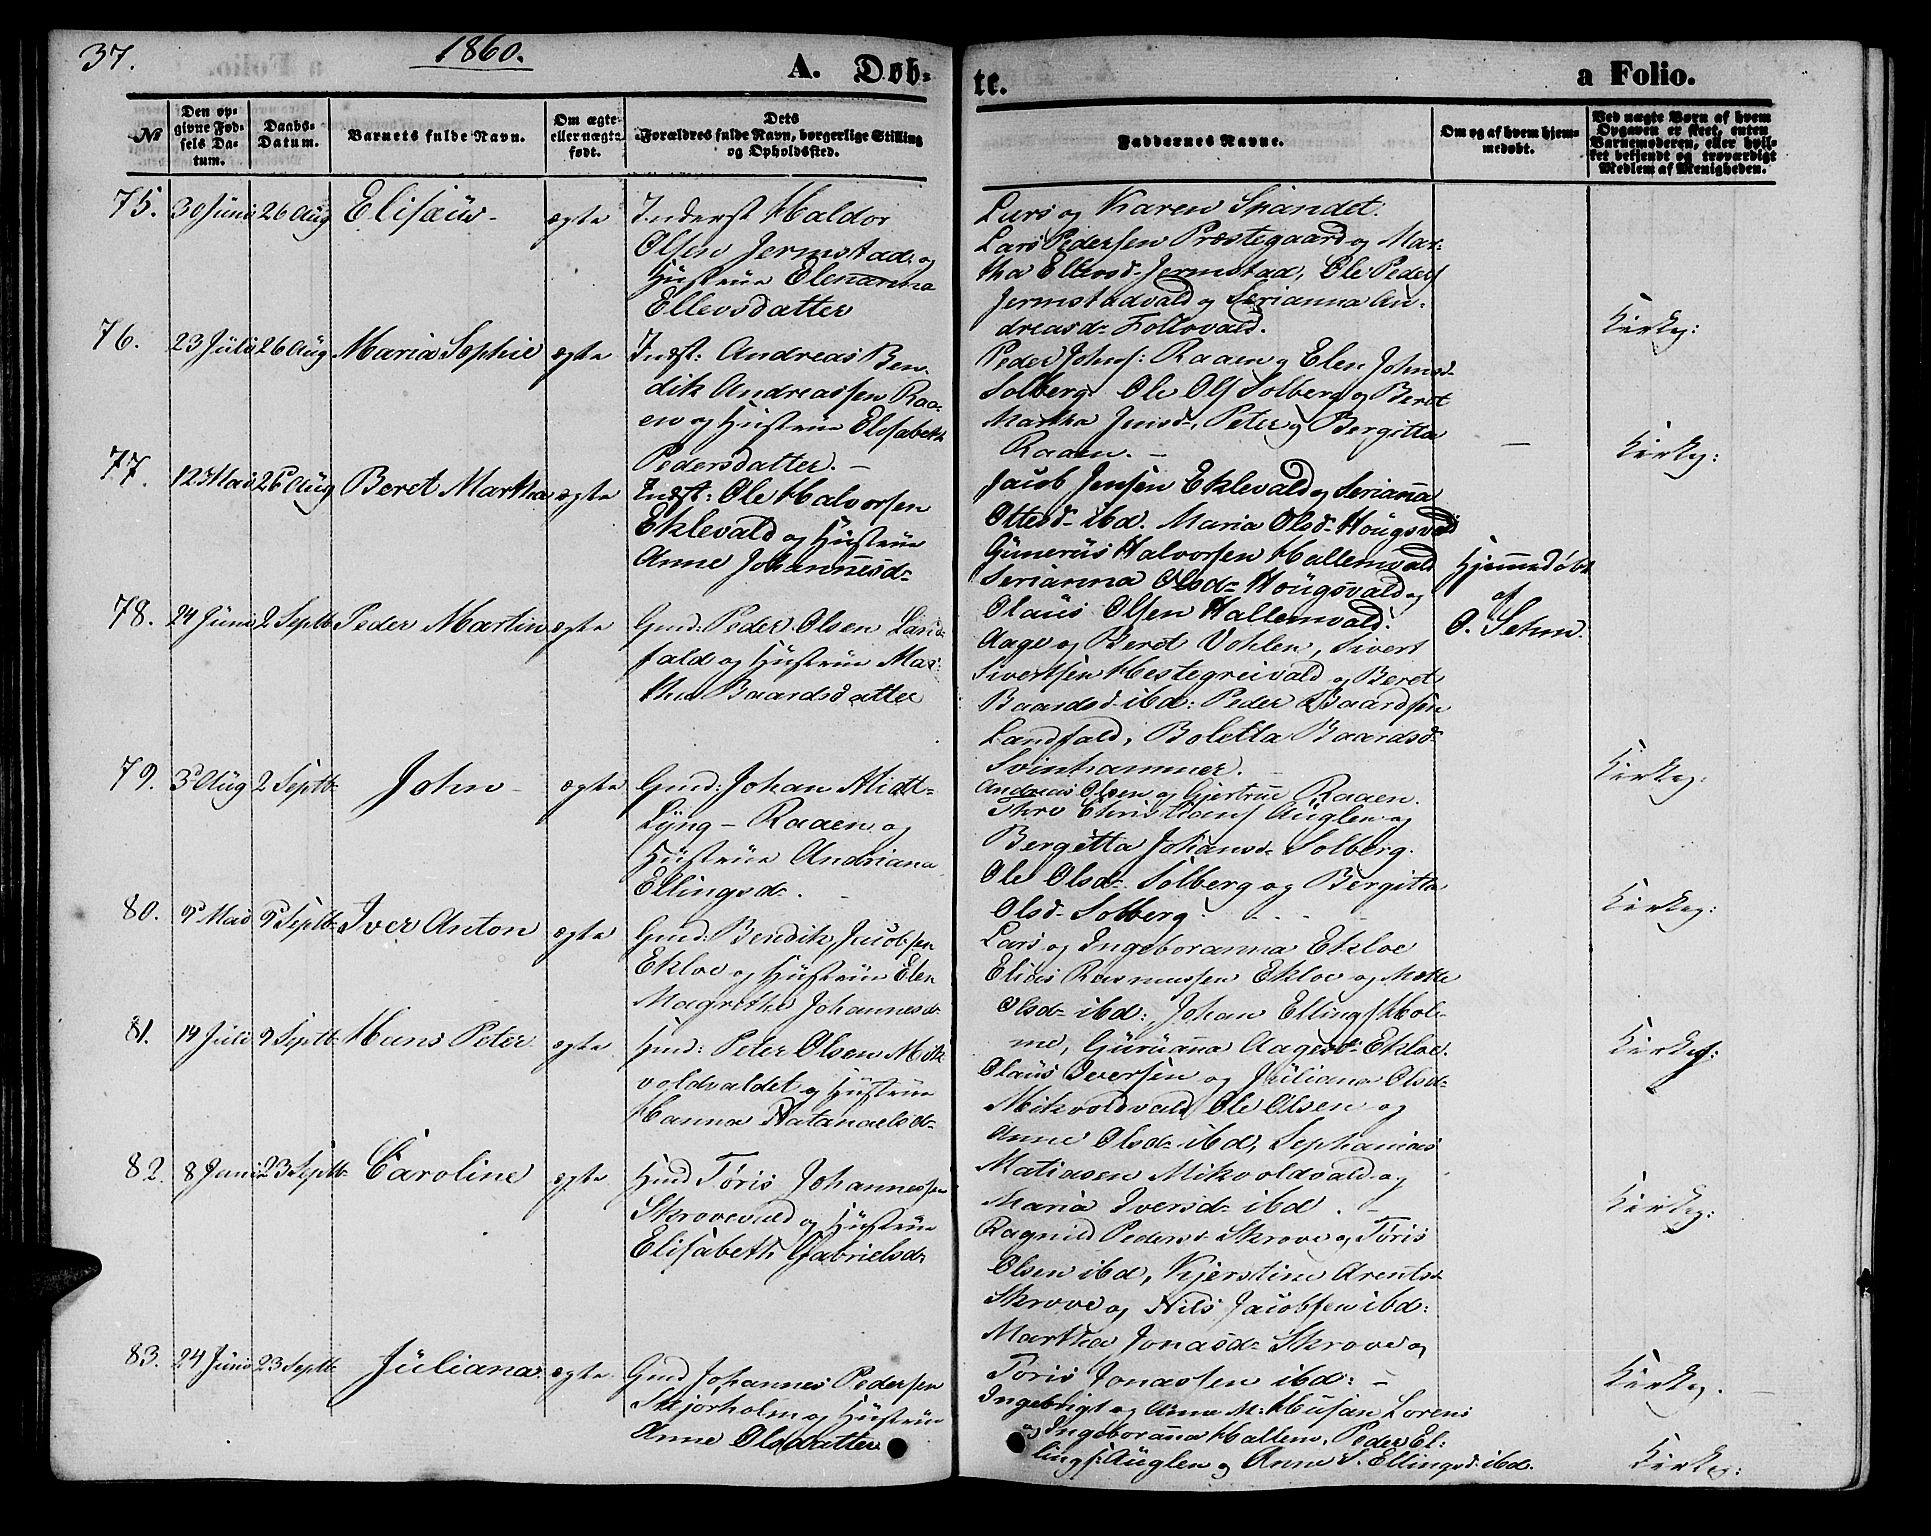 37.
1860.
A. Døb-
te.
a Folio.
№
Den op-
givne Fød-
sels Da-
tum.
Daabs-
Datum.
Barnets fulde Navn.
Om ægte
eller uægte
født.
Dets
Forældres fulde Navn, borgerlige Stilling
og Opholdssted.
Faddernes Navne.
Om og af hvem hjem-
medøbt.
Ved uægte Børn af hvem
Opgaven er skeet, enten
Barnemoderen, eller hvil-
ket bekjendt og troværdigt
Medlem af Menigheden.
75. 30 Juni 26 Aug Elisæus ægte
Inderst Haldor
Olsen Jermstad og
Hustrue Elenanna
Ellevsdatter
Lars og Karen Skandet.
Lars Pedersen Præstegaard og Mar-
tha Ellevsd Jermstad, Ole Peders
Jermstadvald og Serianna An-
dreasd- Follovald.
Kirkeg:
76. 23 Juli 26 Aug Maria Sophie ægte
Indst: Andreas Ben-
dik Andreassen Raa-
en og Hustrue Elisabeth
Pedersdatter. -
Peder Johns: Raaen og Elen Johnsd-
Solberg. Ole Ols Solberg og Beret
Martha Jensd-, Peter og Bergitta
Raaen. -
Kirkeg:
77. 12 Mai 26 Aug Beret Martha ægte
Indst: Ole Halvorsen
Eklevald og Hustrue
Anne Johannesd-
Jacob Jensen Eklevald og Serianna
Ottesd- ibd. Maria Olsd- Hougsvald
Gunerius Halvorsen Hallemvald
Serianna Olsd- Hougsvald og
Olaus Olsen Hallemvald.
Hjemmedøbt
af
O. Setnn.
78. 24 Juni 2 Septb- Peder Martin ægte
Gmd: Peder Olsen Land-
fald og Hustrue Mar-
tha Baardsdatter
Aage og Beret Vohlen, Sivert
Sivertsen Hestegreivald og Beret
Baardsd- ibd: Peder Baardsen
Landfald, Boletta Baardsd-
Svinhammer. -
Kirkeg:
79. 3 Aug 2 Septb- John - ægte
Gmd: Johan Midt-
Lyng - Raaen og
Hustrue Andriana
Ellingsd-. -
Andreas Olsen og Gjertrue Raaen.
Thre Christians Auglen og
Bergitta Johansd- Solberg.
Ole Olsd- Solberg og Bergitta
Olsd- Solberg.
Kirkeg:
80. 9 Mai 9 Septb- Iver Anton ægte
Gmd: Bendik Jacobsen
Ekloe og Hustrue Elen
Magrethe Johannesd-
Lars og Ingeboranna Ekloe
Elias Rasmussen Ekloe og Mette
Olsd- ibd: Johan Ellings Hol-
me, Guruanna Aagesd- Ekloe.
Kirkeg:
81. 14 Juli 9 Septb- Hans Peter ægte
Hmd: Peter Olsen Mik
voldvaldet og Hustrue
Hanna Natanaelsd-
Olaus Iversen og Juliana Olsd-
Mikvoldvald Ole Olsen og
Anne Olsd- ibd, Sephanias
Matiasen Mikvoldvald og
Maria Iversd- ibd. -
Kirkeg:
82. 8 Juni 23 Septb- Caroline ægte
Hmd Toris Johannessen
Skrovevald og Hustrue
Elisabeth Gabrielsd-
Ragnild Pedersd Skrove og Toris
Olsen ibd, Kjerstine Arentsd
Skrove og Nils Jacobsen ibd:
Martha Jonasd- Skrove og
Toris Jonassen ibd: -
Kirkeg. -
83. 24 Juni 23 Septb- Juliana ægte
Gmd Johannes Pedersen
Skjorholm og Hustrue
Anne Olsdatter
Ingebrigt og Anna M: Husan Lorens
og Ingeboranna Hallem. Peder El-
lings: Auglen og Anne S. Ellingsd- ibd.
Kirkeg: